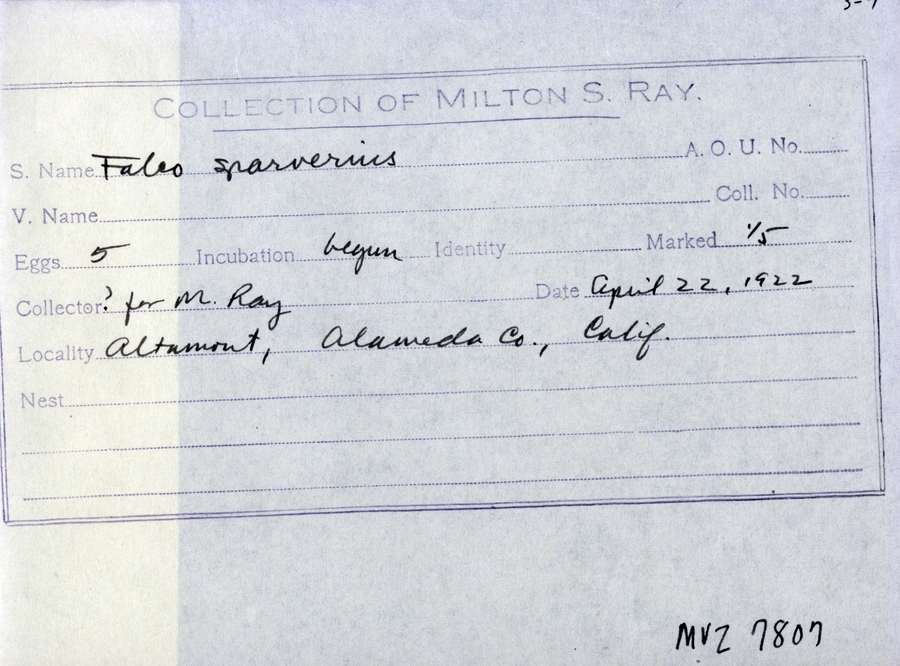 COLLECTION OF MILTON S. RAY.
S. Name Falco sparverius A. O. U. No.
V. Name Coll. No.
Eggs 5 Incubation begun Identity Marked 1/5
Collector ? for M. Ray Date April 22, 1922
Locality Altamont, Alameda Co., Calif.
Nest
MVZ 7807